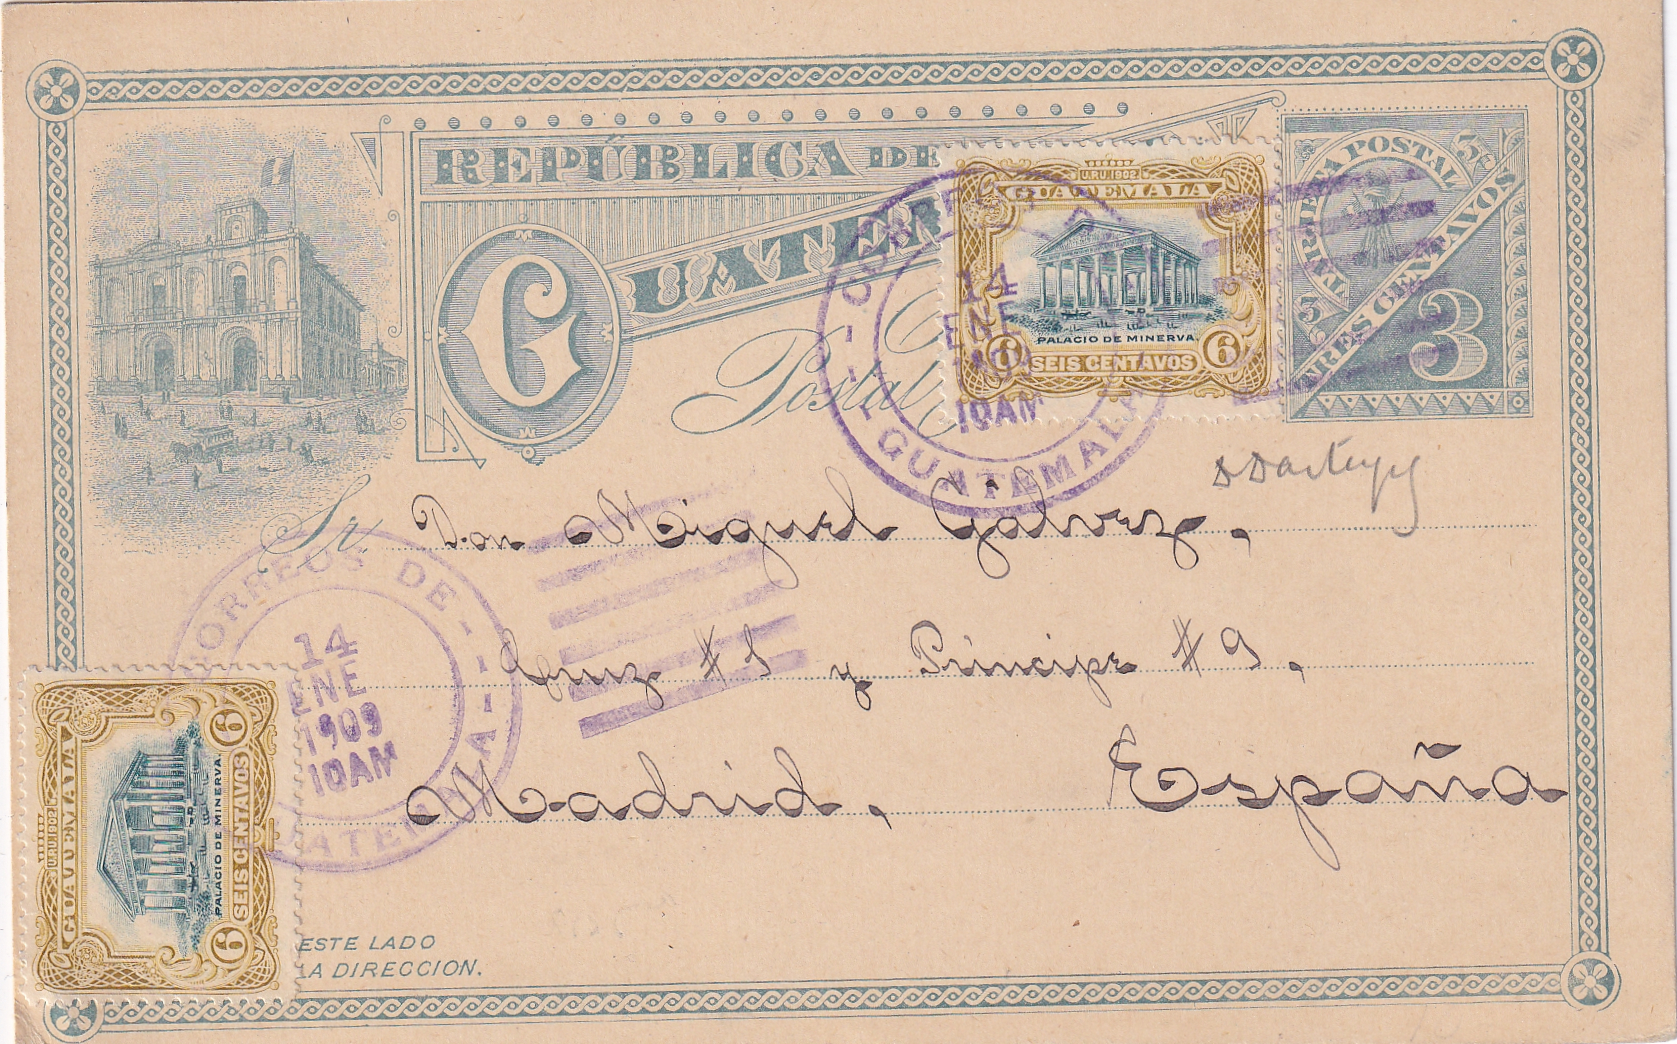 REPÚBLICA DE
GUATE
TARJETA POSTAL
3c
3c
TRES CENTAVOS
3
U.P.U. 1902
GUATEMALA
PALACIO DE MINERVA
6 SEIS CENTAVOS 6
CORREOS DE
14
ENE
10AM
GUATEMALA
Postal
Sr. Don Miguel Galvez,
Cruz #1 y Principe #9,
Madrid, España
CORREOS DE
14
ENE
1909
10AM
GUATEMALA
U.P.U. 1902
GUATEMALA
PALACIO DE MINERVA
6 SEIS CENTAVOS 6
ESTE LADO
LA DIRECCION.